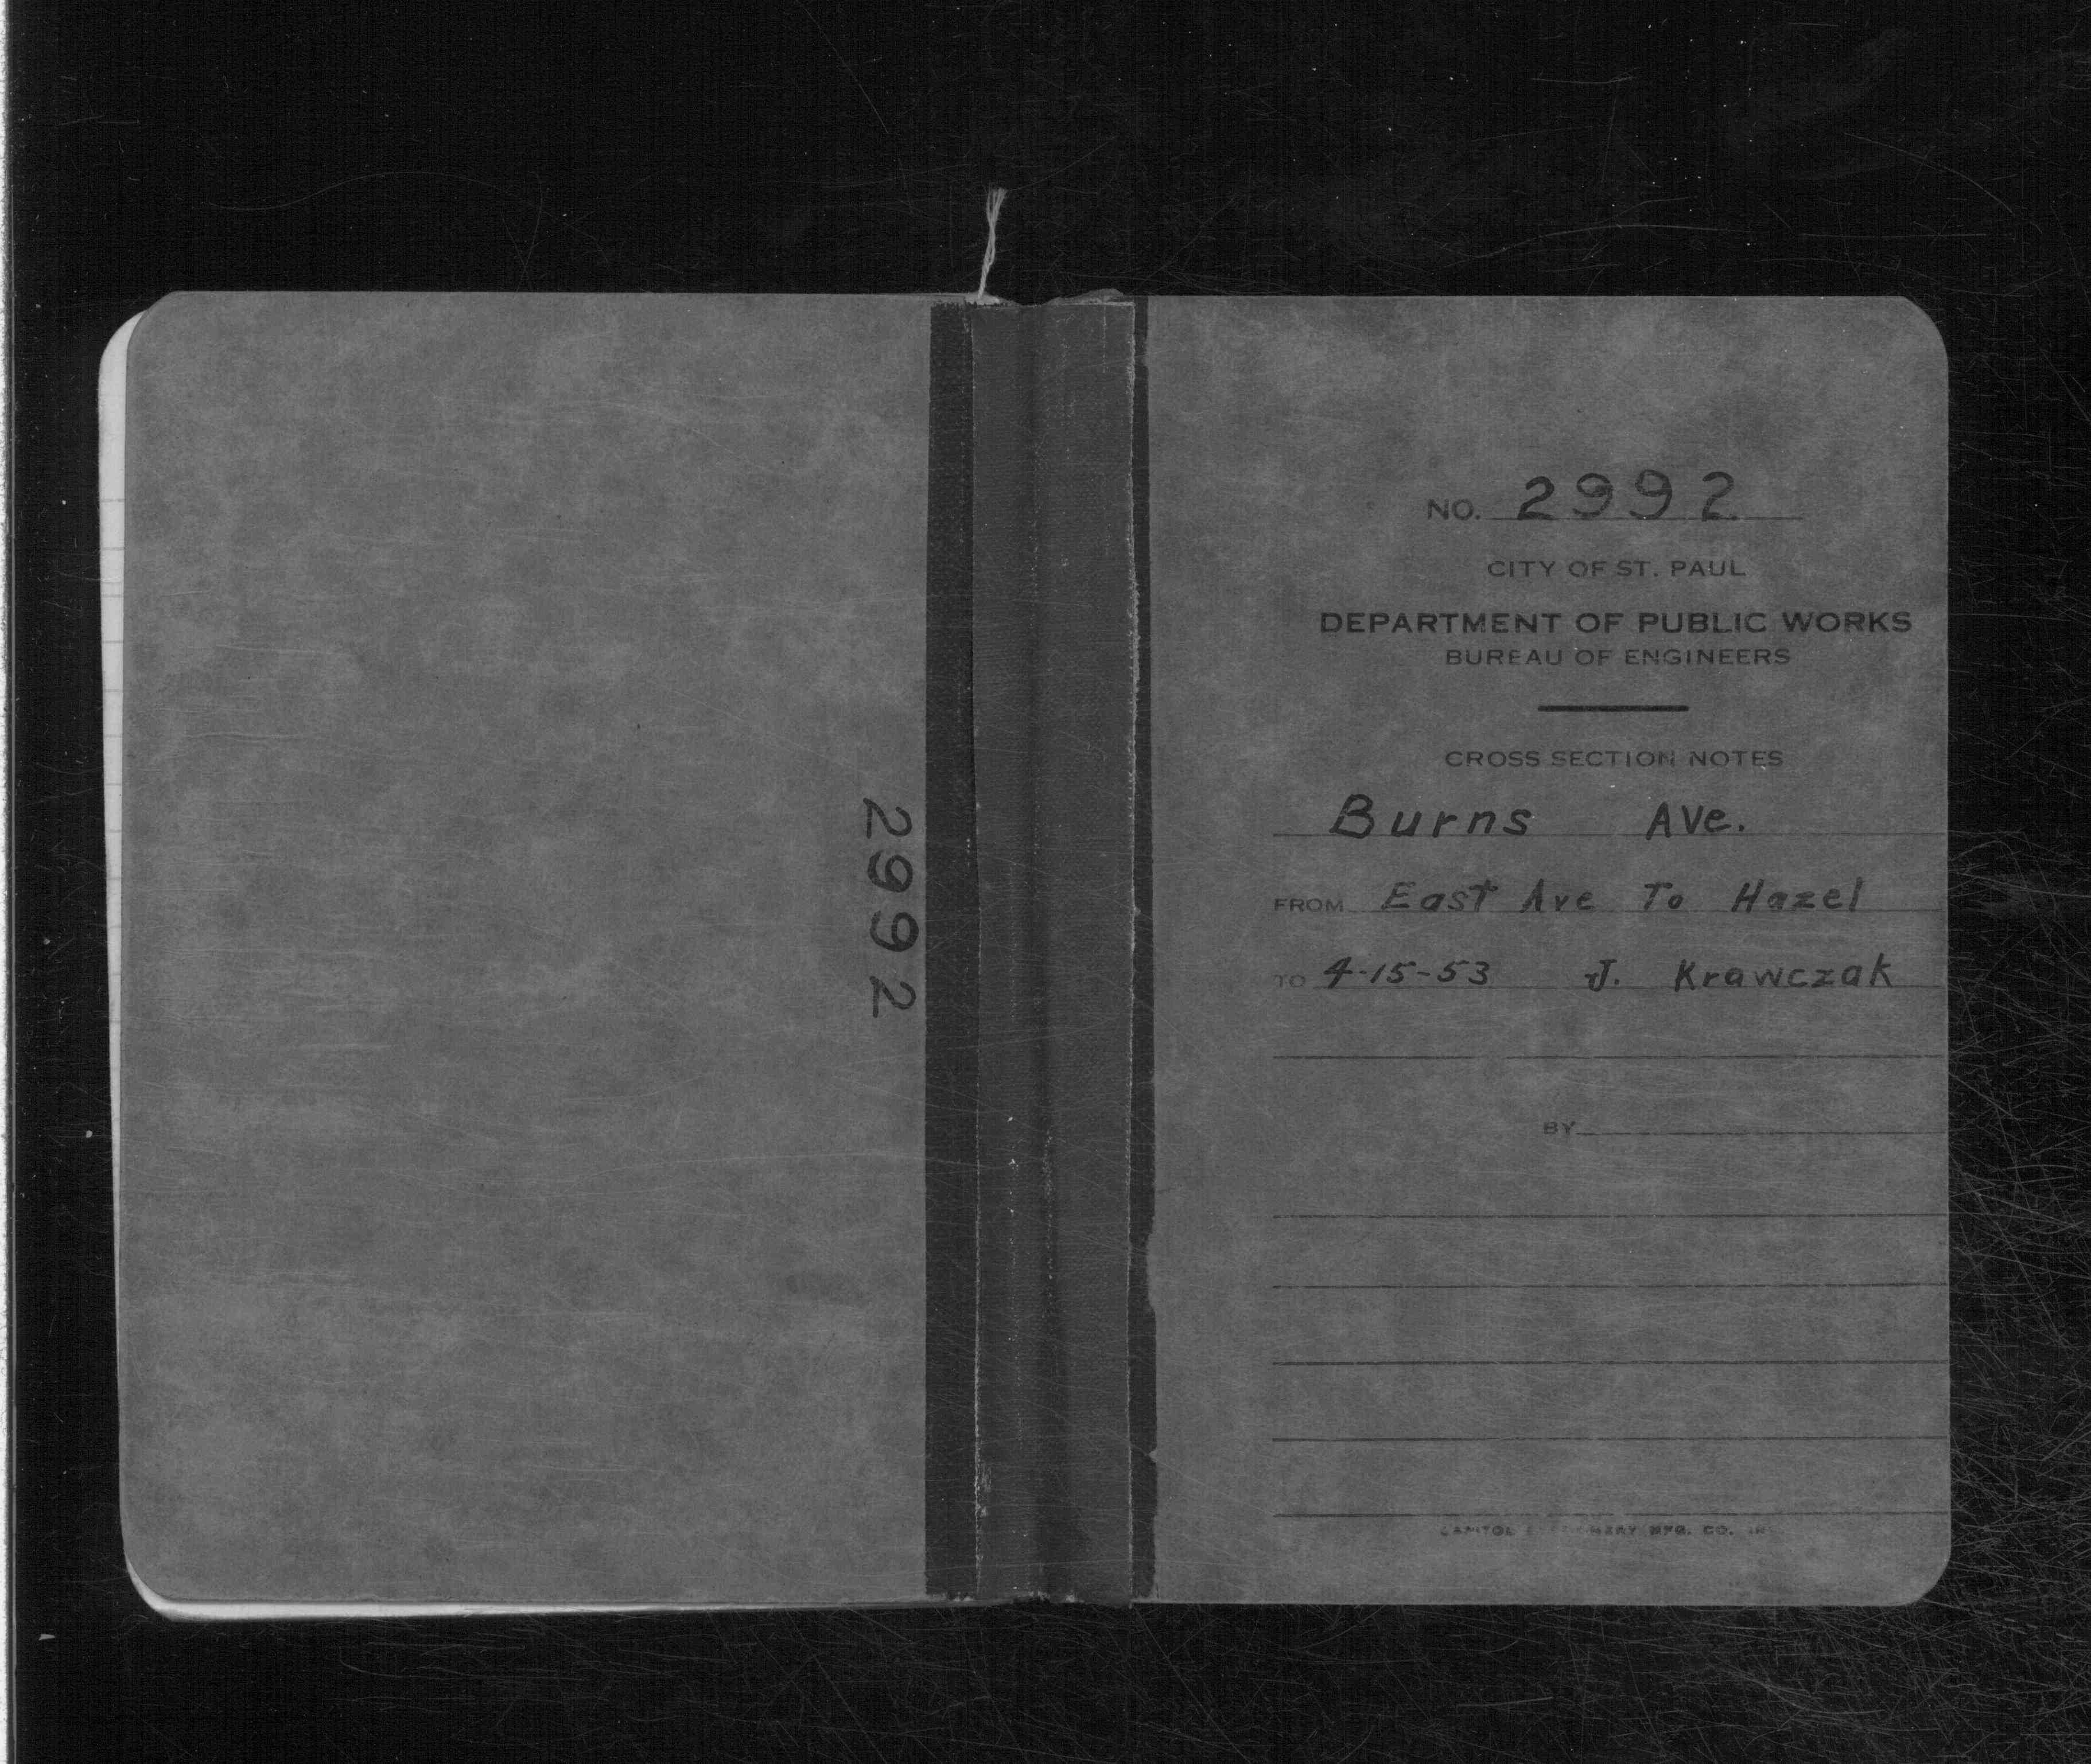 2992
NO. 2992
CITY OF ST. PAUL
DEPARTMENT OF PUBLIC WORKS
BUREAU OF ENGINEERS
CROSS SECTION NOTES
Burns Ave.
FROM East Ave To Hazel
TO 4-15-53 J. Krawczak
BY
CAPITOL STATIONERY MFG. CO. INC.